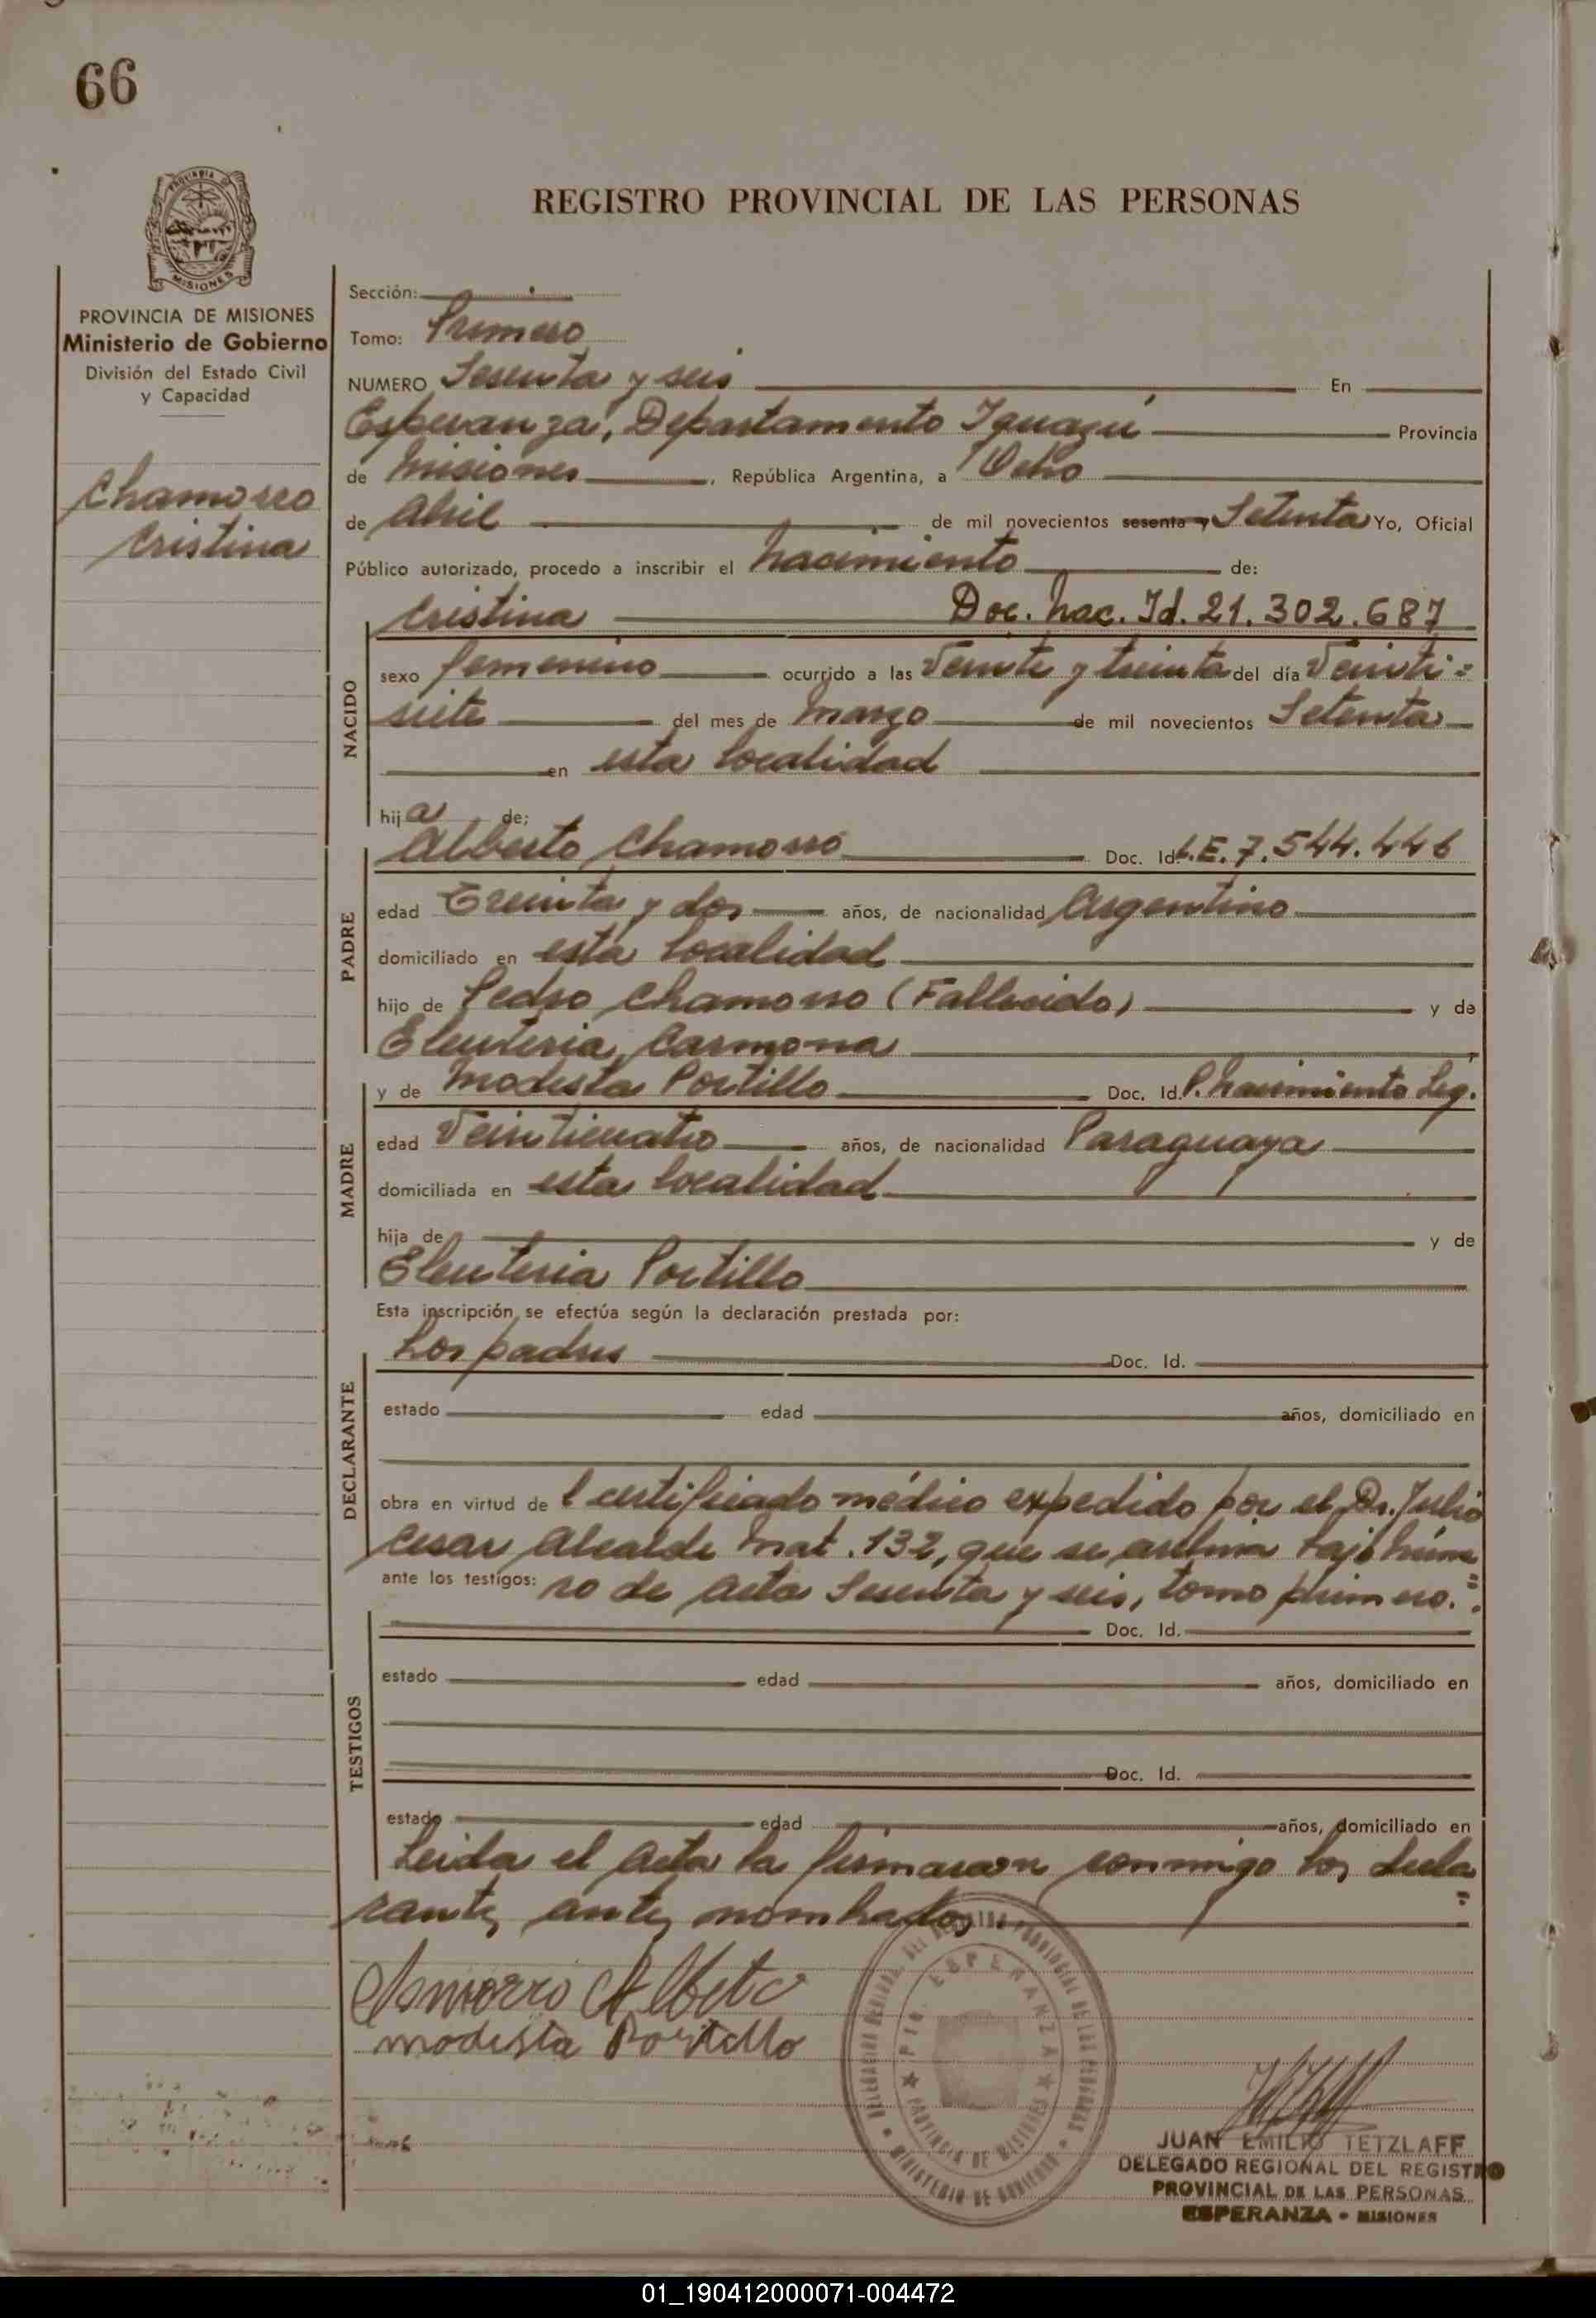 66
PROVINCIA
MISIONES
PROVINCIA DE MISIONES
Ministerio de Gobierno
División del Estado Civil
y Capacidad
Chamorro
Cristina
REGISTRO PROVINCIAL DE LAS PERSONAS
Sección:
Tomo: Primero
NUMERO Sesenta y seis En
Esperanza, Departamento Iguazú Provincia
de Misiones, República Argentina, a Ocho
de Abril de mil novecientos sesenta y Setenta Yo, Oficial
Público autorizado, procedo a inscribir el nacimiento de:
Cristina Doc. Nac. Id. 21.302.687
NACIDO
sexo femenino ocurrido a las Veinte y treinta del día Veinti=
siete del mes de Marzo de mil novecientos Setenta
en esta localidad
hija de;
PADRE
Alberto Chamorro Doc. Id L.E. 7.544.446
edad Treinta y dos años, de nacionalidad Argentino
domiciliado en esta localidad
hijo de Pedro Chamorro (Fallecido) y de
Eleuteria Carmona
MADRE
y de Modesta Portillo Doc. Id. P. Nacimiento Leg.
edad Veinticuatro años, de nacionalidad Paraguaya
domiciliada en esta localidad
hija de y de
Eleuteria Portillo
Esta inscripción se efectúa según la declaración prestada por:
DECLARANTE
Los padres Doc. Id.
estado edad años, domiciliado en
obra en virtud de l certificado médico expedido por el Dr. Julio
Cesar Alcalde Mat. 132, que se archiva bajo núme
ante los testigos: ro de acta Sesenta y seis, tomo primero.=
TESTIGOS
Doc. Id.
estado edad años, domiciliado en
Doc. Id.
estado edad años, domiciliado en
Leida el Acta la firmaron conmigo los decla
rantes antes nombrados
Chamorro Alberto
modesta Portillo
DELEGACION REGIONAL DEL REGISTRO PROVINCIAL DE LAS PERSONAS
PTO. ESPERANZA
PROVINCIA DE MISIONES
MINISTERIO DE GOBIERNO
JUAN EMILIO TETZLAFF
DELEGADO REGIONAL DEL REGISTRO
PROVINCIAL DE LAS PERSONAS
ESPERANZA - MISIONES
01_190412000071-004472